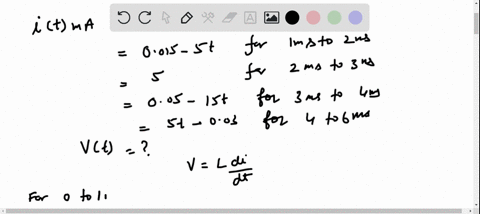 i(t) mA
= 0.015 - 5t for 1ms to 2ms
= 5 for 2ms to 3ms
= 0.05 - 15t for 3ms to 4ms
= 5t - 0.03 for 4 to 6ms
V(t) = ?
V = L di/dt
For 0 to 1